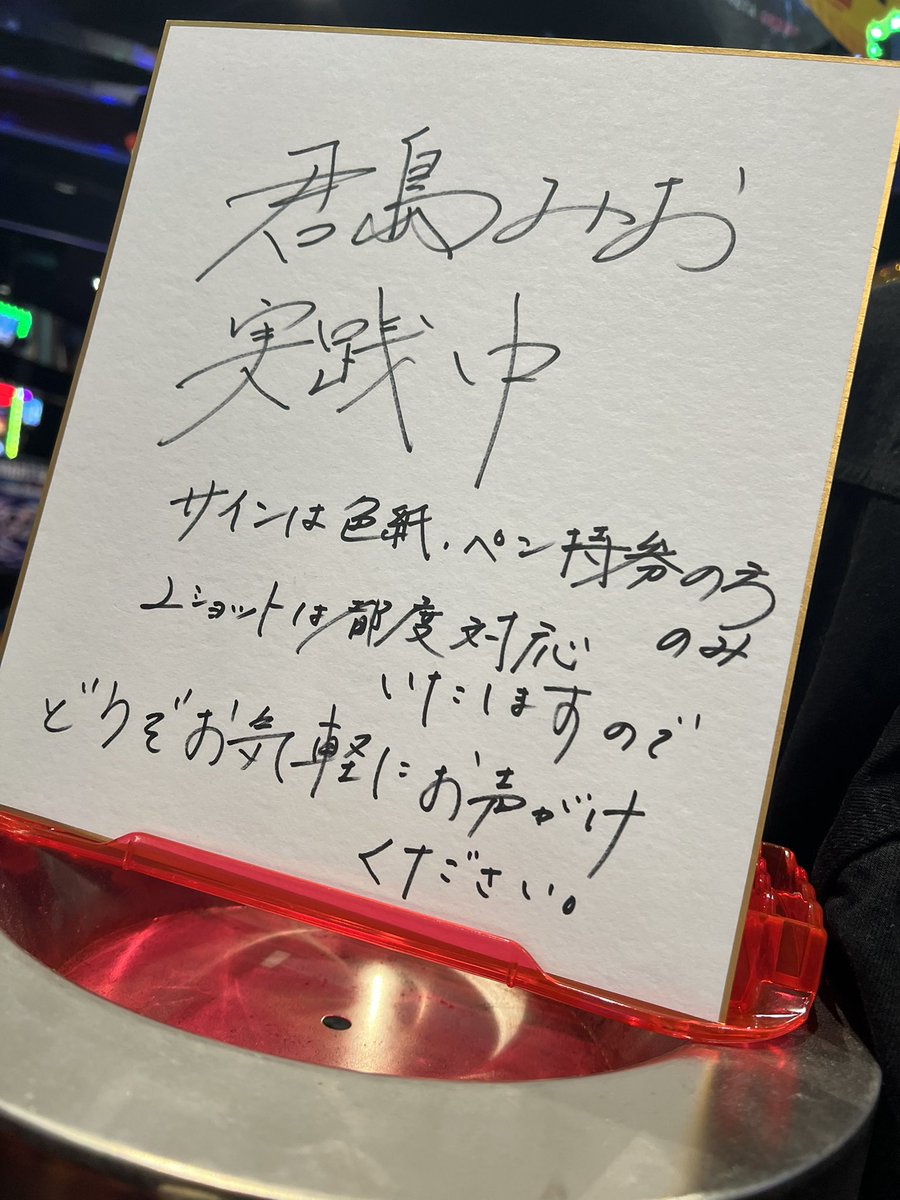 君島みお
実践中
サインは色紙、ペン持参の方
のみ
2ショットは都度対応
いたしますので
どうぞお気軽にお声がけ
ください。